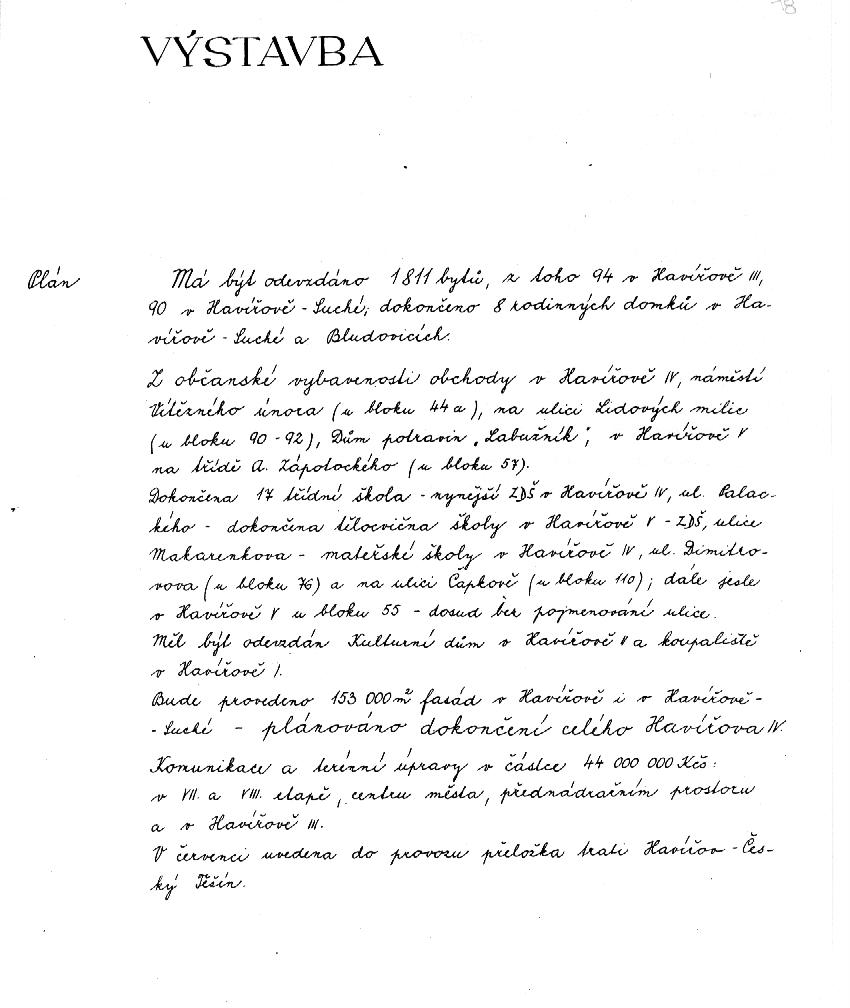 18
VÝSTAVBA
Plán
Má být odevzdáno 1811 bytů, z toho 94 v Havířově III,
90 v Havířově - Suché; dokončeno 8 rodinných domků v Ha-
vířově - Suché a Bludovicích.
Z občanské vybavenosti obchody v Havířově IV, náměstí
Vítězného února (u bloku 44a), na ulici Lidových milic
(u bloku 90-92), Dům potravin „Labužník", v Havířově V
na třídě A. Zápotockého (u bloku 57).
Dokončena 17 třídní škola - nynější ZDŠ v Havířově IV, ul. Palac-
kého - dokončena tělocvična školy v Havířově V - ZDŠ, ulice
Makarenkova - mateřské školy v Havířově IV, ul. Dimitro-
vova (u bloku 76) a na ulici Čapkově (u bloku 110); dále jesle
v Havířově V u bloku 55 - dosud bez pojmenování ulice.
Měl být odevzdán Kulturní dům v Havířově V a koupaliště
v Havířově I.
Bude provedeno 153 000 m² fasád v Havířově i v Havířově-
- Suché - plánováno dokončení celého Havířova IV.
Komunikace a terénní úpravy v částce 44 000 000 Kčs:
v VII. a VIII. etapě, centru města, přednádražním prostoru
a v Havířově III.
V červenci uvedena do provozu přeložka trati Havířov - Čes-
ký Těšín.